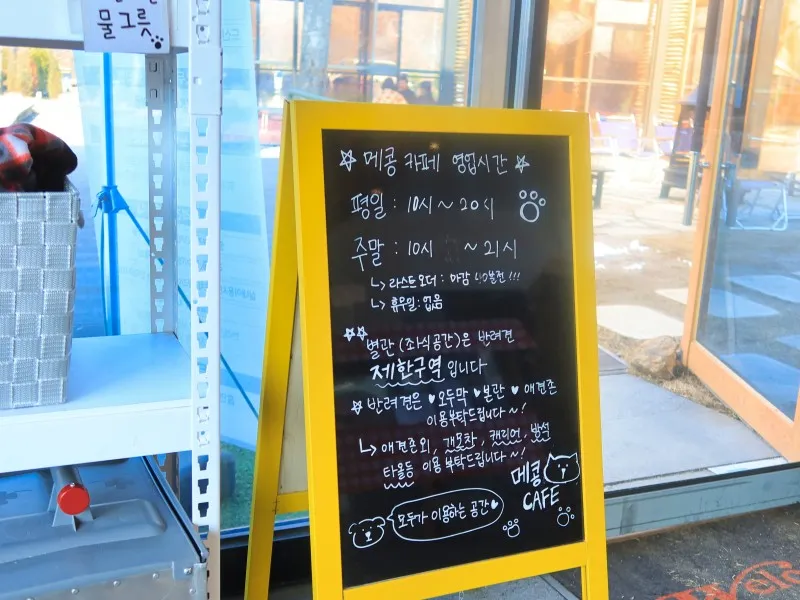 물그릇
☆ 메콩 카페 영업시간 ☆
평일 : 10시 ~ 20시
주말 : 10시 ~ 21시
↳ 라스트오더 : 마감 40분전 !!!
↳ 휴무일 : 없음
☆☆ 별관 (좌식공간)은 반려견
제한구역 입니다
☆ 반려견은 ♥오두막 ♥본관 ♥ 애견존
이용부탁드립니다 ~!
↳ 애견존외, 개모차, 캐리어, 방석
타올등 이용 부탁드립니다 ~!
메콩
CAFE
모두가 이용하는 공간♥